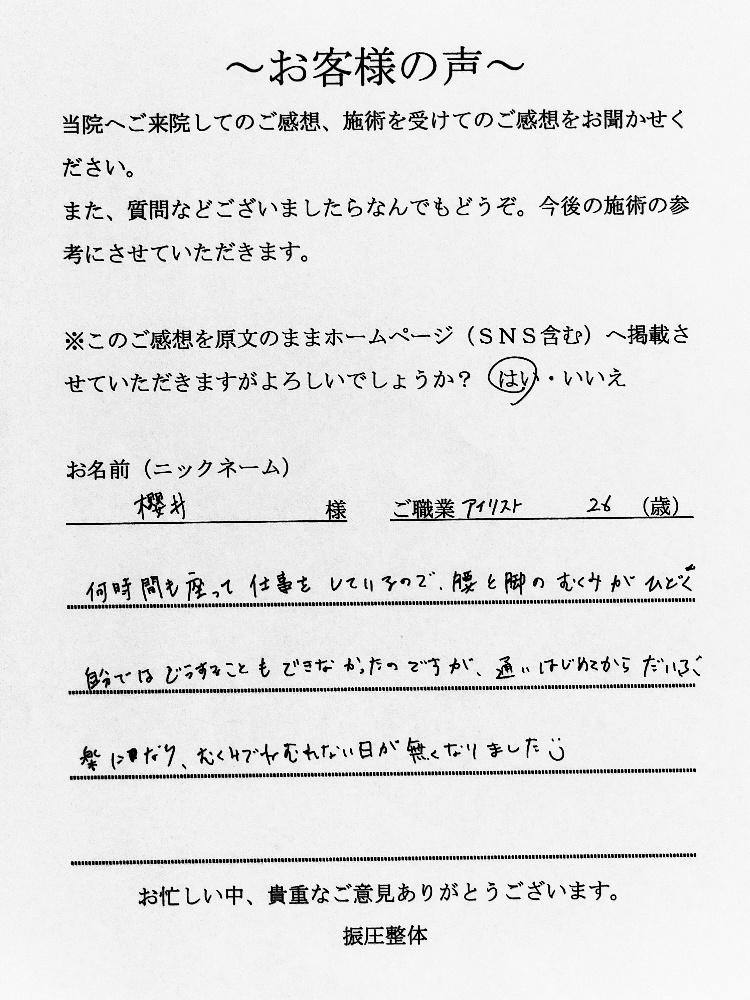 ～お客様の声～
当院へご来院してのご感想、施術を受けてのご感想をお聞かせく
ださい。
また、質問などございましたらなんでもどうぞ。今後の施術の参
考にさせていただきます。
※このご感想を原文のままホームページ（ＳＮＳ含む）へ掲載さ
せていただきますがよろしいでしょうか？ はい・いいえ
お名前（ニックネーム）
櫻井 様 ご職業 アイリスト 26 （歳）
何時間も座って仕事をしているので、腰と脚のむくみがひどく
自分ではどうすることもできなかったのですが、通いはじめてからだいぶ
楽になり、むくみでねむれない日が無くなりました
お忙しい中、貴重なご意見ありがとうございます。
振圧整体